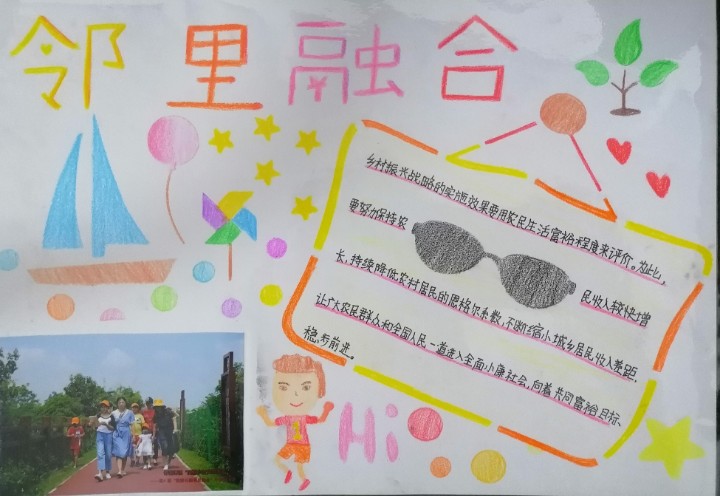 邻里融合
乡村振兴战略的实施效果要用农民生活富裕程度来评价。为此,
要努力保持农民收入较快增
长,持续降低农村居民的恩格尔系数,不断缩小城乡居民收入差距,
让广大农民群众和全国人民一道进入全面小康社会,向着共同富裕目标
稳步前进。
Hi